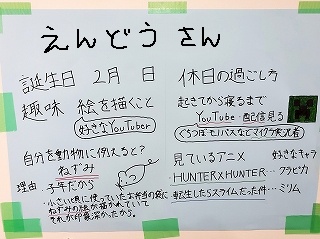 えんどう さん
誕生日 2月 日
趣味 絵を描くこと
好きなYouTuber
自分を動物に例えると?
ねずみ
理由 子年だから
・小さい頃に使っていたお弁当の袋に
ねずみの絵が描かれていて
それが印象深かったから。
休日の過ごし方
起きてから寝るまで
YouTube・配信見る
見ているアニメ 好きなキャラ
・HUNTER×HUNTER… クラピカ
・転生したらスライムだった件… ミリム